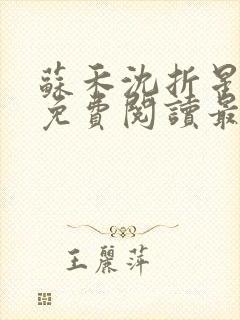 蘇禾沈折星
免費閱讀最
王麗萍